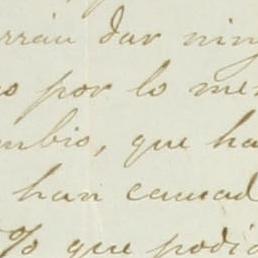 rrán dar nin
o por lo me
mbio, que ha
han causad
% que podi